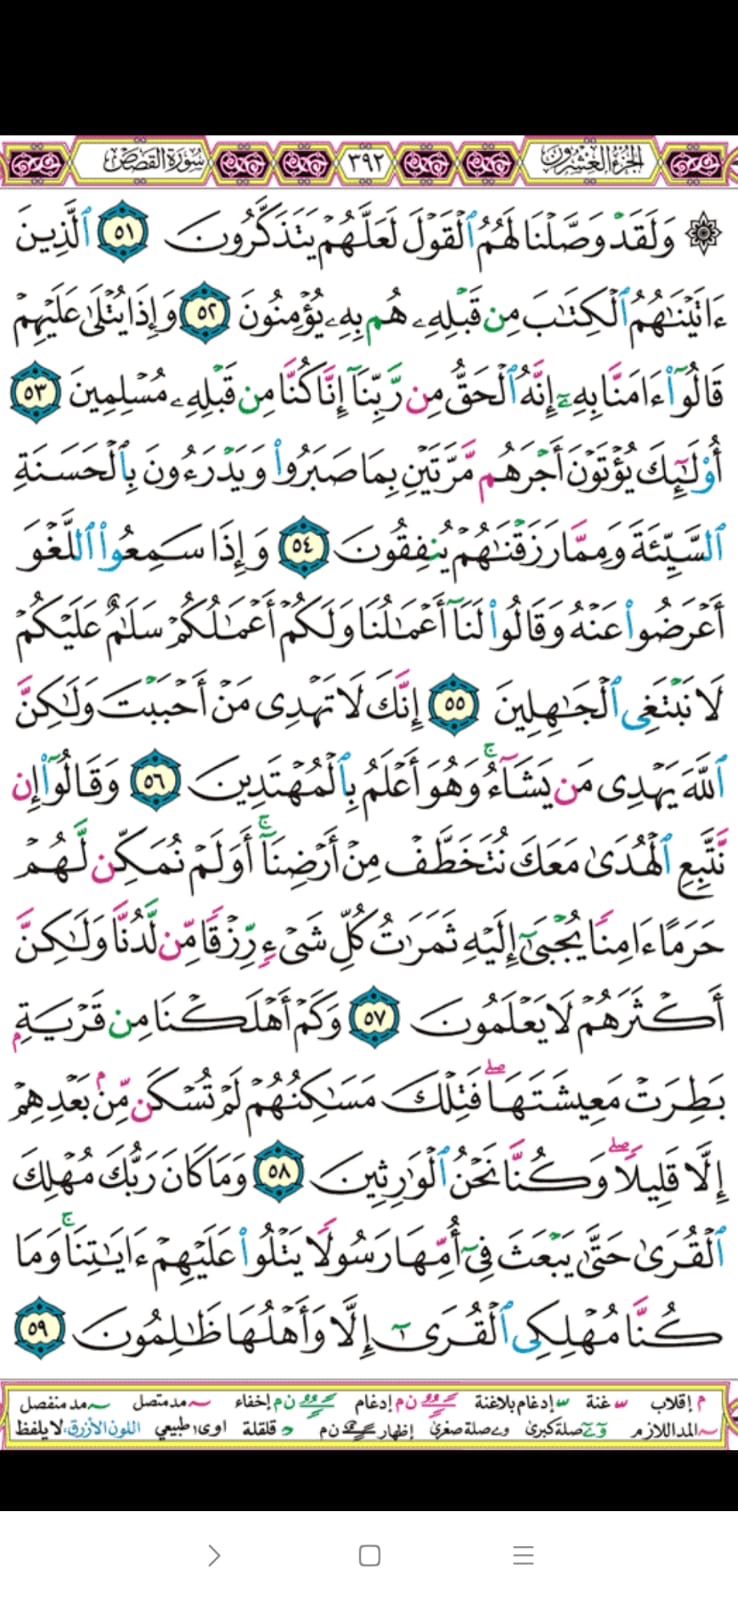 الجزء العشرون ٣٩٢ سورة القصص
۞ وَلَقَدْ وَصَّلْنَا لَهُمُ ٱلْقَوْلَ لَعَلَّهُمْ يَتَذَكَّرُونَ ٥١ ٱلَّذِينَ
ءَاتَيْنَٰهُمُ ٱلْكِتَٰبَ مِن قَبْلِهِۦ هُم بِهِۦ يُؤْمِنُونَ ٥٢ وَإِذَا يُتْلَىٰ عَلَيْهِمْ
قَالُوٓا۟ ءَامَنَّا بِهِۦٓ إِنَّهُ ٱلْحَقُّ مِن رَّبِّنَآ إِنَّا كُنَّا مِن قَبْلِهِۦ مُسْلِمِينَ ٥٣
أُو۟لَٰٓئِكَ يُؤْتَوْنَ أَجْرَهُم مَّرَّتَيْنِ بِمَا صَبَرُوا۟ وَيَدْرَءُونَ بِٱلْحَسَنَةِ
ٱلسَّيِّئَةَ وَمِمَّا رَزَقْنَٰهُمْ يُنفِقُونَ ٥٤ وَإِذَا سَمِعُوا۟ ٱللَّغْوَ
أَعْرَضُوا۟ عَنْهُ وَقَالُوا۟ لَنَآ أَعْمَٰلُنَا وَلَكُمْ أَعْمَٰلُكُمْ سَلَٰمٌ عَلَيْكُمْ
لَا نَبْتَغِى ٱلْجَٰهِلِينَ ٥٥ إِنَّكَ لَا تَهْدِى مَنْ أَحْبَبْتَ وَلَٰكِنَّ
ٱللَّهَ يَهْدِى مَن يَشَآءُ ۚ وَهُوَ أَعْلَمُ بِٱلْمُهْتَدِينَ ٥٦ وَقَالُوٓا۟ إِن
نَّتَّبِعِ ٱلْهُدَىٰ مَعَكَ نُتَخَطَّفْ مِنْ أَرْضِنَآ ۚ أَوَلَمْ نُمَكِّن لَّهُمْ
حَرَمًا ءَامِنًا يُجْبَىٰٓ إِلَيْهِ ثَمَرَٰتُ كُلِّ شَىْءٍ رِّزْقًا مِّن لَّدُنَّا وَلَٰكِنَّ
أَكْثَرَهُمْ لَا يَعْلَمُونَ ٥٧ وَكَمْ أَهْلَكْنَا مِن قَرْيَةٍۭ
بَطِرَتْ مَعِيشَتَهَا ۖ فَتِلْكَ مَسَٰكِنُهُمْ لَمْ تُسْكَن مِّنۢ بَعْدِهِمْ
إِلَّا قَلِيلًا ۖ وَكُنَّا نَحْنُ ٱلْوَٰرِثِينَ ٥٨ وَمَا كَانَ رَبُّكَ مُهْلِكَ
ٱلْقُرَىٰ حَتَّىٰ يَبْعَثَ فِىٓ أُمِّهَا رَسُولًا يَتْلُوا۟ عَلَيْهِمْ ءَايَٰتِنَا ۚ وَمَا
كُنَّا مُهْلِكِى ٱلْقُرَىٰٓ إِلَّا وَأَهْلُهَا ظَٰلِمُونَ ٥٩
م إقلاب غنة إدغام بلاغنة ن م إدغام ن م إخفاء مد متصل مد منفصل
المد اللازم صلة كبرى صلة صغرى إظهار ن م قلقلة اوى طبيعي اللون الأزرق، لا يلفظ